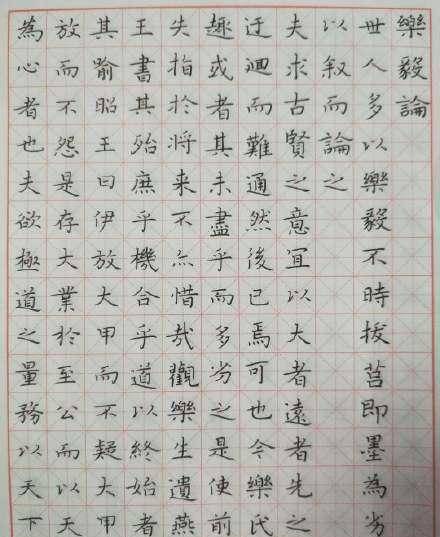 樂毅論
世人多以樂毅不時拔莒即墨為劣
以叙而論之
夫求古賢之意宜以大者遠者先之
迂迴而難通然後已焉可也今樂氏
趣或者其未盡乎而多劣之是使前
失指於將来不亦惜哉觀樂生遺燕
王書其殆庶乎機合乎道以終始者
其喻昭王曰伊放大甲而不疑大甲
放而不怨是存大業於至公而以天
為心者也夫欲極道之量務以天下